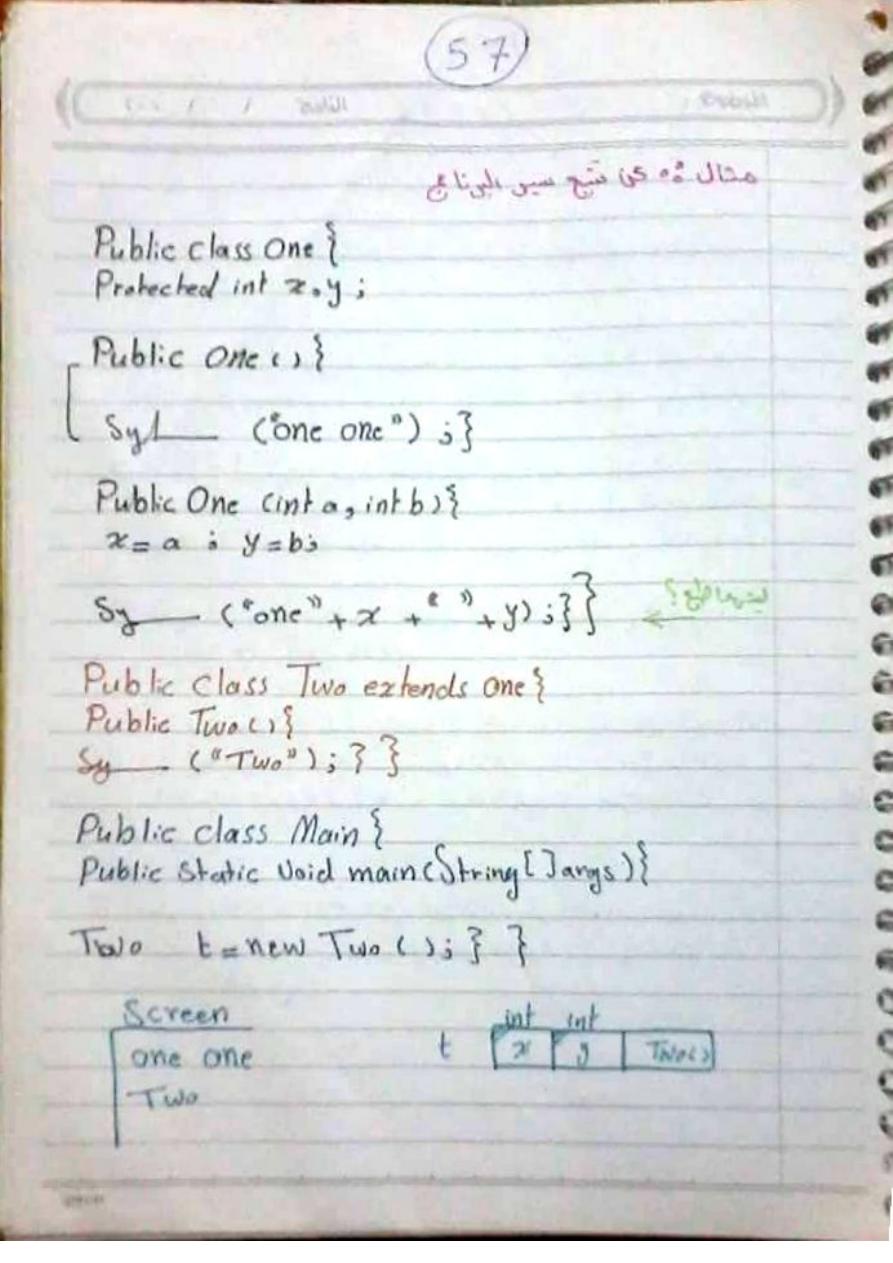 57
مثال عن تتبع سير البرنامج
Public class One {
Protected int x,y ;
Public One () {
Sy ("one one") ;}
Public One (int a, int b) {
x = a ; y = b;
Sy ("one" + x + " " + y) ;} }
Public class Two extends one {
Public Two () {
Sy ("Two") ; } }
Public class Main {
Public Static Void main (String [] args) {
Two t = new Two () ; } }
Screen
one one
Two
int int
t x y Two()